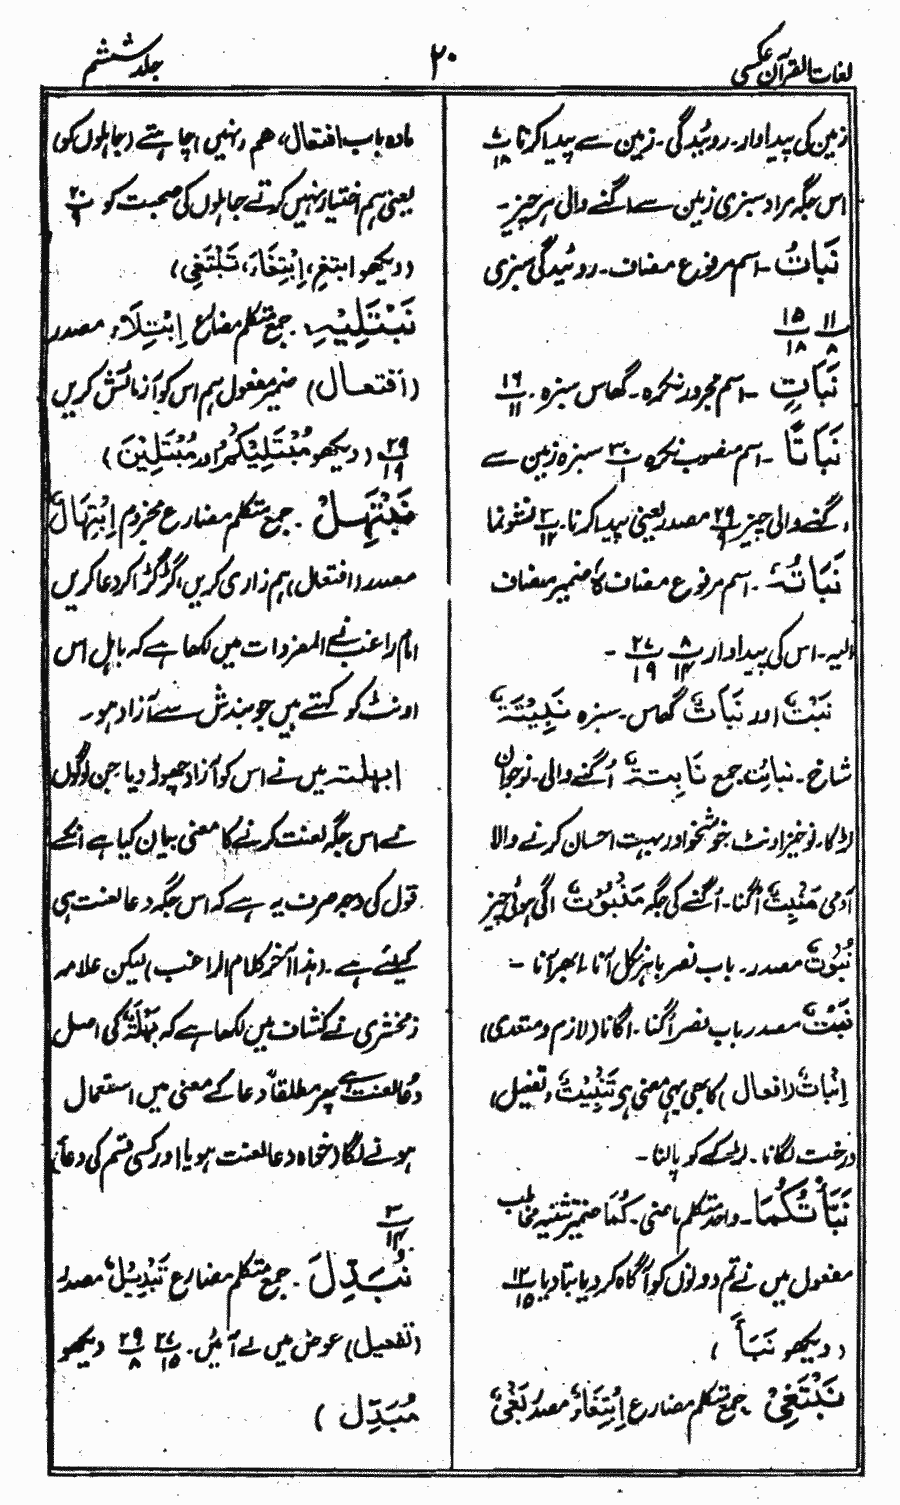 لغات القرآن عکسی
۲۰
جلد ششم
زمین کی پیداوار۔ روئیدگی۔ زمین سے پیدا کرنا ۷/۱۸
اس جگہ مراد سبزی زمین سے اگنے والی ہر چیز۔
نَبَاتُ ۔ اسم مرفوع مضاف۔ روئیدگی سبزی
۱۱/۸ ۱۵/۱۸
نَبَاتٍ ۔ اسم مجرور نکرہ۔ گھاس سبزہ۔ ۱۶/۱۱
نَبَاتًا ۔ اسم منصوب نکرہ ۳۰/۱ سبزہ زمین سے
اگنے والی چیز ۲۹/۹ مصدر یعنی پیدا کرنا۔ ۳/۱۲ نشوونما
نَبَاتُہٗ ۔ اسم مرفوع مضاف ہٗ ضمیر مضاف
الیہ۔ اس کی پیداوار ۸/۱۴ ۲۷/۱۹ ۔
نَبْتٌ اور نَبَاتٌ گھاس۔ سبزہ نَبِیْتَۃٌ
شاخ۔ نبائت جمع نَابِتَۃٌ اُگنے والی۔ نوجوان
لڑکا۔ نوخیز اونٹ، خوشخو اور بہت احسان کرنے والا
آدمی مَنْبِتٌ اُگنا۔ اُگنے کی جگہ مَنْبُوْتٌ اگی ہوئی چیز
نُبُوْتٌ مصدر۔ باب نصر باہر نکل آنا۔ ابھر آنا۔
نَبْتٌ مصدر باب نصر اُگنا۔ اگانا (لازم و متعدی)
اِنْبَاتٌ (افعال) کا بھی یہی معنی ہی تَنْبِیْتٌ (تفعیل)
درخت لگانا۔ لڑکے کو پالنا۔
نَبَّأْتُکُمَا ۔ واحد متکلم ماضی۔ کُمَا ضمیر تثنیہ مخاطب
مفعول میں نے تم دونوں کو آگاہ کر دیا بتا دیا ۱۲/۱۵
(دیکھو نَبَأٌ)
نَبْتَغِیْ جمع متکلم مضارع اِبْتِغَاءٌ مصدر بَغْیٌ
مادہ باب افتعال، ہم نہیں چاہتے (جاہلوں کو)
یعنی ہم اختیار نہیں کرتے جاہلوں کی صحبت کو ۲۰/۹
(دیکھو ابتغِ، اِبْتِغَاءَ، تَبْتَغِی)
نَبْتَلِیْہِ ۔ جمع متکلم مضارع اِبْتِلَاءٌ مصدر
(افتعال) ضمیر مفعول ہم اس کو آزمائش کریں
۲۹/۱۹ (دیکھو مُبْتَلِیْکُمْ اور مُبْتَلِیْنَ)
نَبْتَہِلْ ۔ جمع متکلم مضارع مجزوم اِبْتِہَالٌ
مصدر (افتعال) ہم زاری کریں، گڑگڑا کر دعا کریں
امام راغب نے المفردات میں لکھا ہے کہ باہل اس
اونٹ کو کہتے ہیں جو بندش سے آزاد ہو۔
ابہلتہ میں نے اس کو آزاد چھوڑ دیا جن لوگوں
نے اس جگہ لعنت کرنے کا معنی بیان کیا ہے انکے
قول کی وجہ صرف یہ ہے کہ اس جگہ دعا لعنت ہی
کیلئے ہے۔ (ہذا آخر کلام الراغب) لیکن علامہ
زمخشری نے کشاف میں لکھا ہے کہ بَہْلَۃٌ کی اصل
دُعا لعنت ہے پھر مطلقاً دعا کے معنی میں استعمال
ہونے لگا (خواہ دعا لعنت ہو یا اور کسی قسم کی دعا)
۳/۱۴
نُبَدِّلَ ۔ جمع متکلم مضارع تَبْدِیْلٌ مصدر
(تفعیل) عوض میں لے آئیں۔ ۲۷/۱۵ ۲۹/۸ (دیکھو
مُبَدِّل)